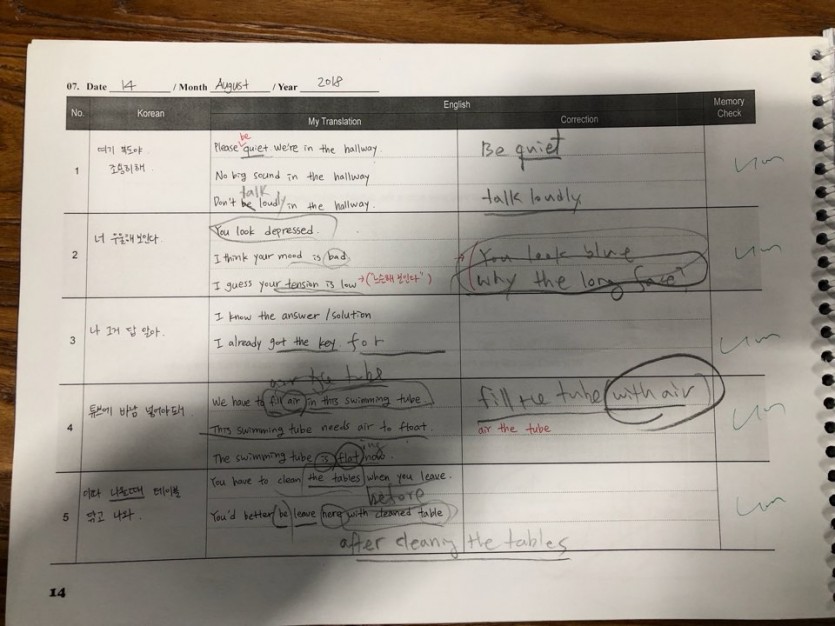 07. Date 14 / Month August / Year 2018
No. Korean English Memory Check
My Translation Correction
1
여기 복도야
조심히해
be
Please quiet we're in the hallway.
No big sound in the hallway
talk
Don't be loudly in the hallway.
Be quiet
talk loudly
2
너 우울해 보인다
You look depressed.
I think your mood is bad
I guess your tension is low → ("느슨해 보인다")
You look blue
Why the long face?
3
나 그거 답 알아.
I know the answer / solution
I already got the key for
4
튜브에 바람 넣어야 돼
air the tube
We have to fill air in this swimming tube.
This swimming tube needs air to float.
The swimming tube is flat now.
fill the tube with air
air the tube
5
이따 나올때 테이블
닦고 나와.
You have to clean the tables when you leave.
before
You'd better be leave here with cleaned table
after cleaning the tables
14